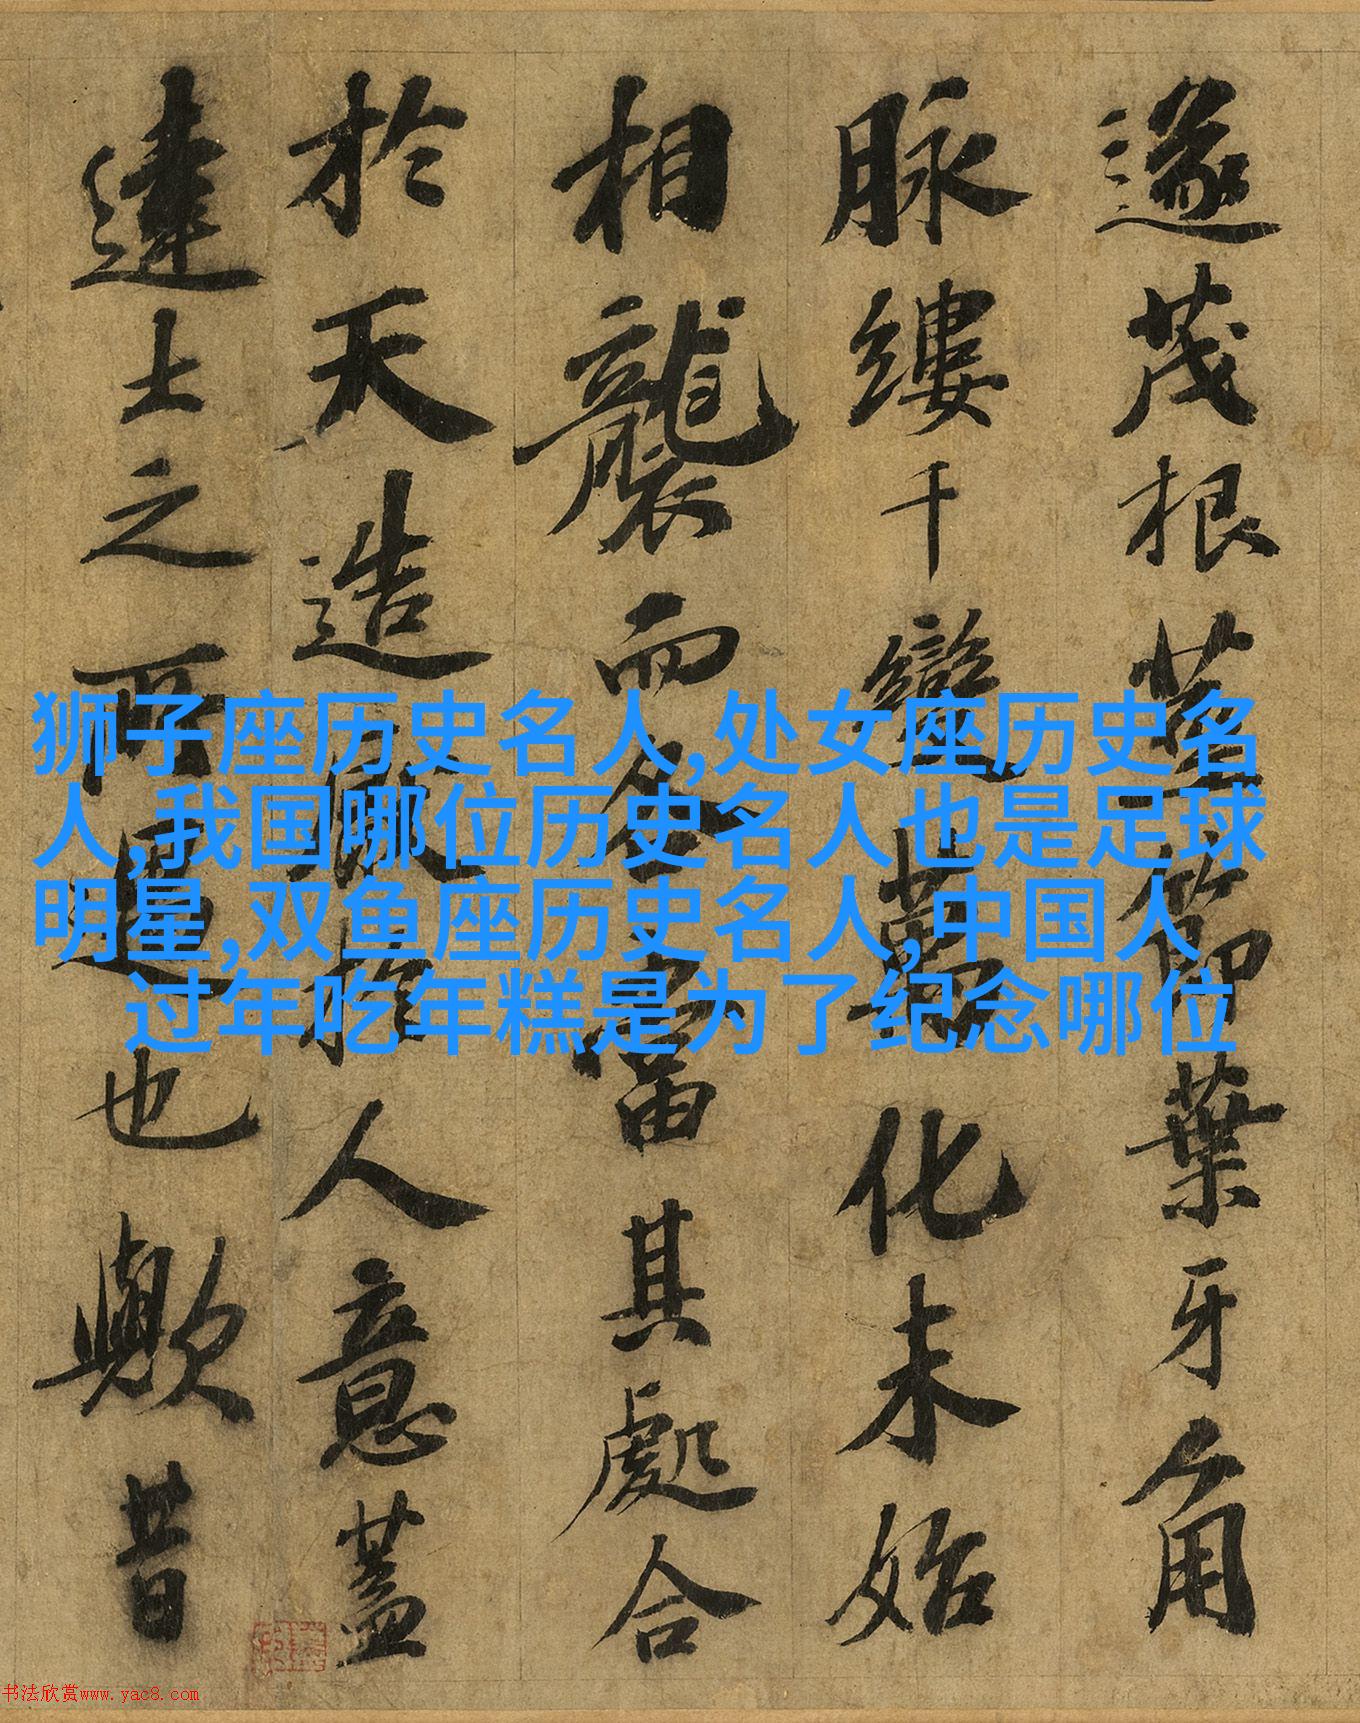 遂茂根荄節葉牙角
脉縷千變萬化未始
相襲而各當其處合
於天造厭於人意蓋
達士之所寓也歟昔
狮子座历史名人,处女座历史名
人,我国哪位历史名人也是足球
明星,双鱼座历史名人,中国人
过年吃年糕是为了纪念哪位
书法欣赏www.yac8.com